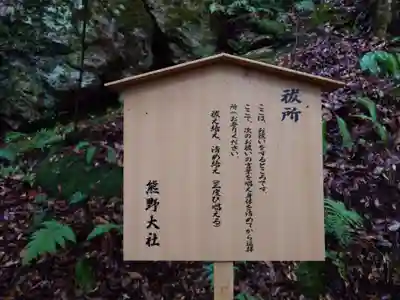 祓所
ここは、お祓いをするところです。
ここで、次のお祓いの言葉を唱え身体を清めてから遥拝
所へお参りください。
祓え給え、清め給え(三度び唱える)
熊野大社